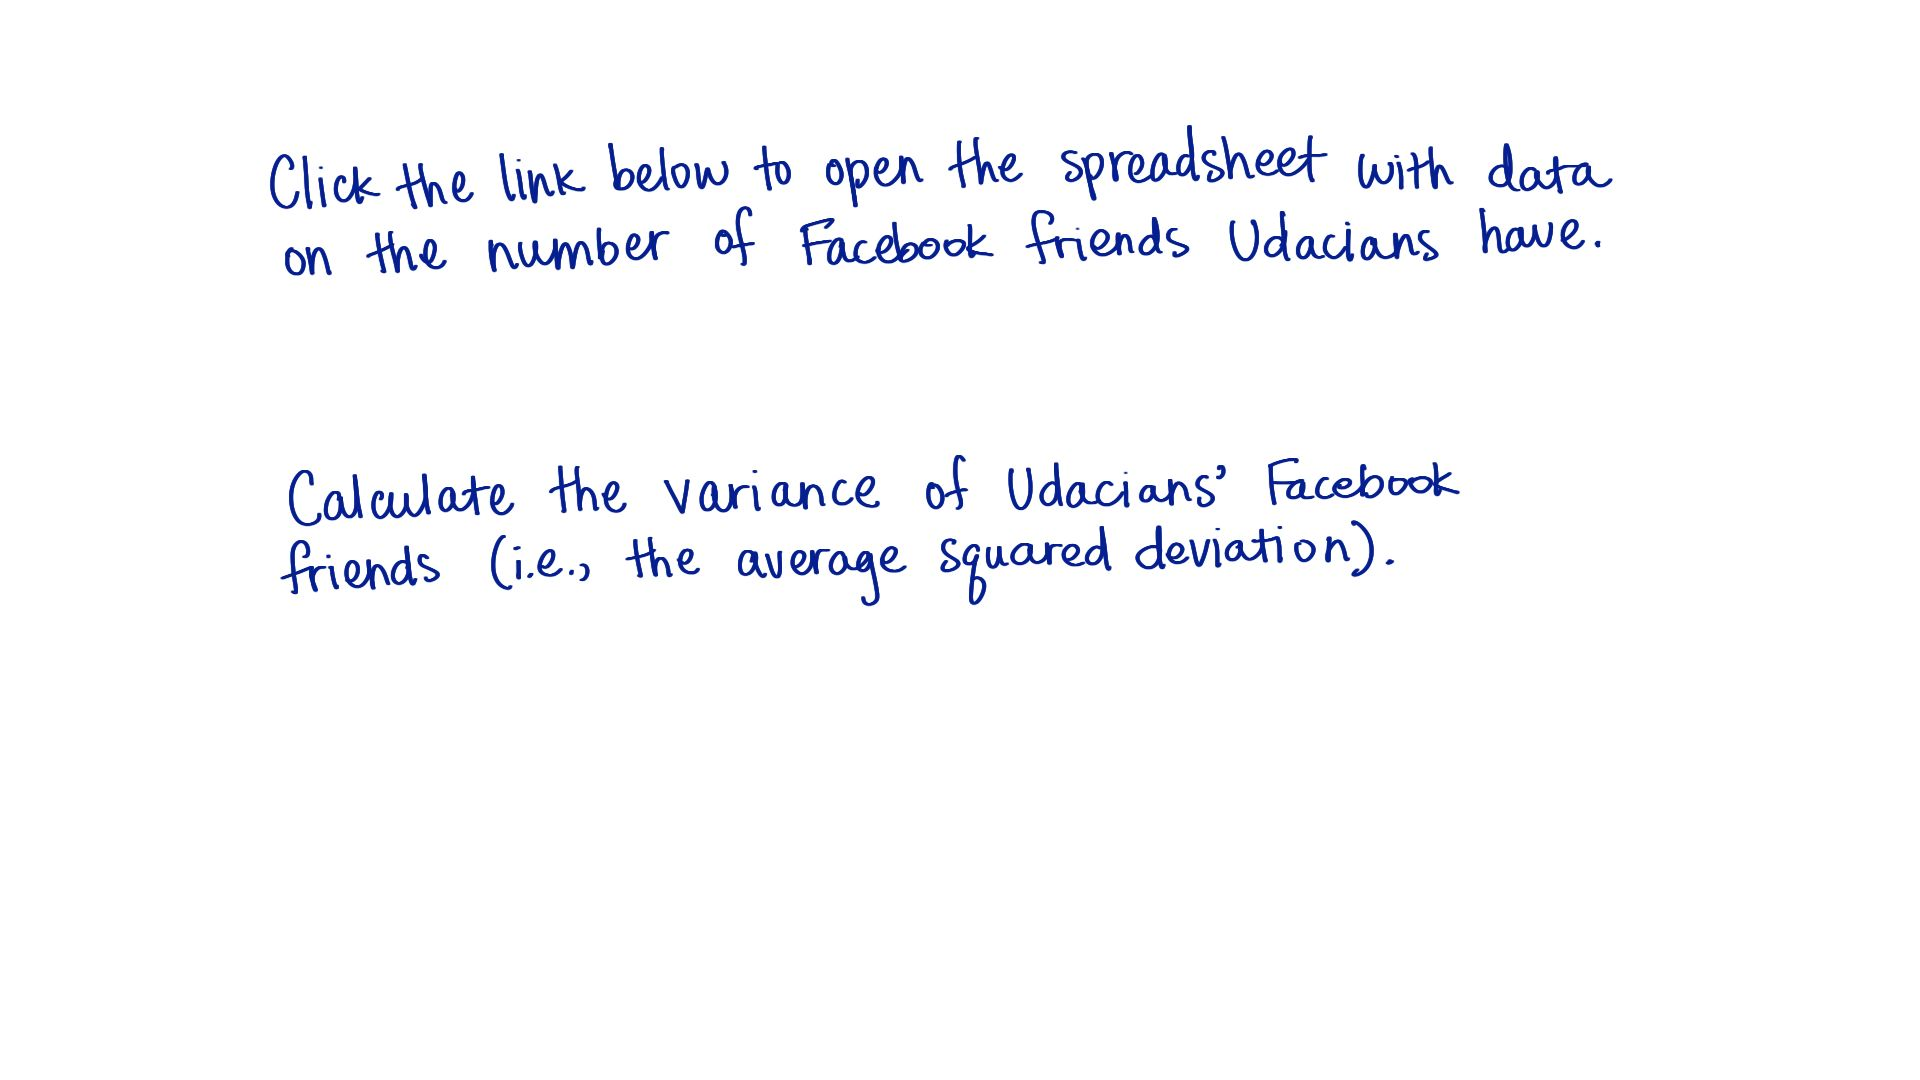 Click the link below to open the spreadsheet with data
on the number of Facebook friends Udacians have.
Calculate the variance of Udacians' Facebook
friends (i.e., the average squared deviation).